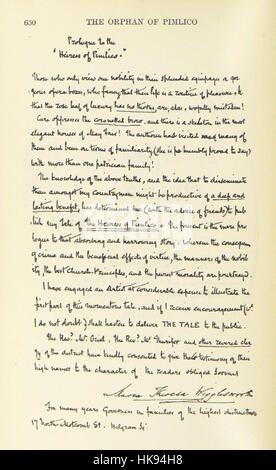 650
THE ORPHAN OF PIMLICO
Prologue to the
"Heiress of Pimlico."
Those who only view our nobility in their splendid equipages or
geous opera boxes, who fancy that their life is a routine of pleasure, &
that the rose leaf of luxury has no thorns, are, alas, woefully mistaken!
Care oppresses the coronetted brow, and there is a skeleton in the most
elegant houses of May Fair! The authoress has visited many of
them and been on terms of familiarity (she is humbly proud to say)
with more than one patrician family!
The knowledge of the above truths, and the idea that to disseminate
them amongst my countrymen might be productive of a deep and
lasting benefit, has determined me (with the advice of friends) to pub
lish my tale of the Heiress of Pimlico. The present is the mere pro
logue to that absorbing and harrowing story, wherein the consequences
of crime and the beneficial effects of virtue, the manners of the nobil
ity, the best Church-Principles, and the purest morality are portrayed.
I have engaged an Artist at considerable expense to illustrate the
first part of this momentous tale, and if I receive encouragement (wh.
I do not doubt) shall hasten to deliver THE TALE to the public.
The Revd. Mr. Oriel, The Revd. Mr. Thurifer and other revered clergy
of the district have kindly consented to give the testimony of their
high names to the character of the reader's obliged Servant
Maria Theresa Wigglesworth
For many years Governess in families of the highest distinction
17 North Motcomb St. Belgrave Sq.
alamy
HK94H8